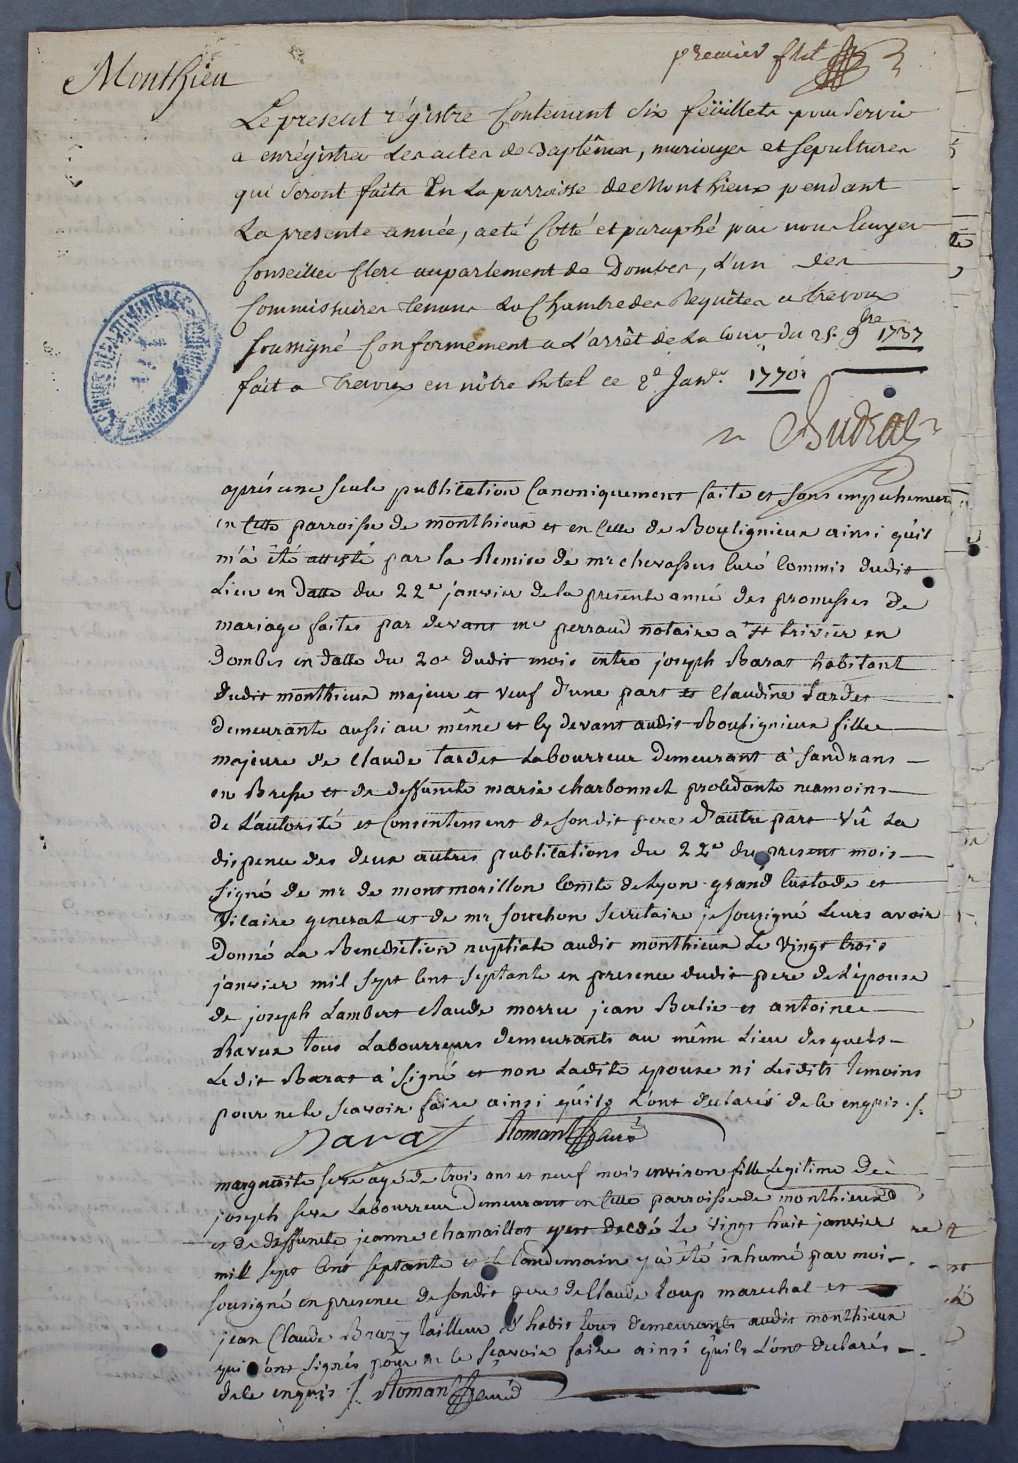 Monthieu
premier f
Le present régistre Contenant six feüillets pour servir
a enrégistrer les actes de Baptêmes, mariages et sepultures
qui seront faits En La parroisse de Monthieux pendant
La presente année, a eté Cotté et paraphé par nous Ecuyer
Conseiller Clerc au parlement de Dombes, L'un des
Commissaires tenant La Chambre des Requêtes a trevoux
soussigné Conformement a L'arrêt de La Cour du 25. 9bre 1737
fait a trevoux en nôtre hotel ce 2e Janvr. 1770.
après une seule publication Canoniquement faite et sans empechement
en cette parroisse de monthieux et en celle de Bouligneux ainsi qu'il
m'à été attesté par la Remise de mr chevassus curé commis dudit
Lieu en Datte du 22e janvier de la presente année des promesses de
mariage faites par devant me perraud notaire à St trivier en
Dombes en datte du 20e dudit mois entre joseph Barat habitant
dudit monthieux majeur et veuf d'une part et claudine tardet
demeurante aussi au même et cy devant audit Bouligneux fille
majeure de claude tardet Laboureur demeurant à sandrans
en Bresse et de deffuncte marie charbonnet procedante neamoins
de L'autorité et consentement de son dit pere d'autre part vû La
dispence des deux autres publications du 22e du present mois
signé de mr de montmorillon comte de Lyon grand custode et
vicaire general et de mr souchon secretaire je sousigné Leurs avoir
Donné La Benediction nuptiale audit monthieux Le vingt trois
janvier mil sept cent septante en presence dudit pere de L'épouse
de joseph Lambert claude morru jean Berlie et antoine
Ravux tous Laboureurs demeurants au même Lieu desquels
Ledit Barat a signé et non Ladite epouse ni Lesdits temoins
pour ne le scavoir faire ainsi qu'ils L'ont declarés de ce enquis ./.
Barat Romant curé
marguerite seve âgé de trois ans et neuf mois environ fille Legitime de
joseph seve Laboureur demeurant en cette parroisse de monthieux
et de deffuncte jeanne chamaillot y est decdé Le vingt huit janvier
mill sept cent septante et le Landemain y a été inhumé par moi
sousigné en presence de sondit pere de claude Loup marechal et
jean Claude Brazy tailleur d'habit tous demeurants audit monthieux
qui n'ont signés pour ne le scavoir faire ainsi qu'ils L'ont declarés
de ce enquis ./. Romant curé